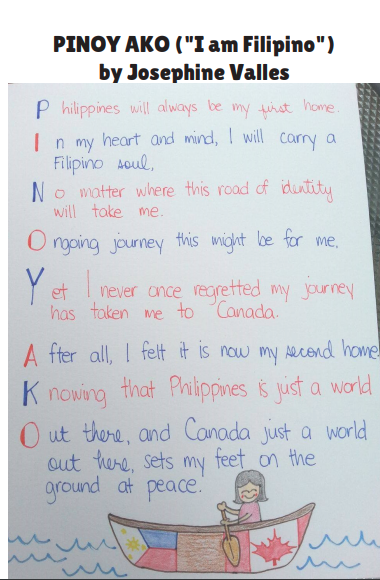 PINOY AKO ("I am Filipino")
by Josephine Valles
Philippines will always be my first home.
In my heart and mind, I will carry a
Filipino soul,
No matter where this road of identity
will take me.
Ongoing journey this might be for me,
Yet I never once regretted my journey
has taken me to Canada.
After all, I felt it is now my second home
Knowing that Philippines is just a world
Out there, and Canada just a world
out here, sets my feet on the
ground at peace.